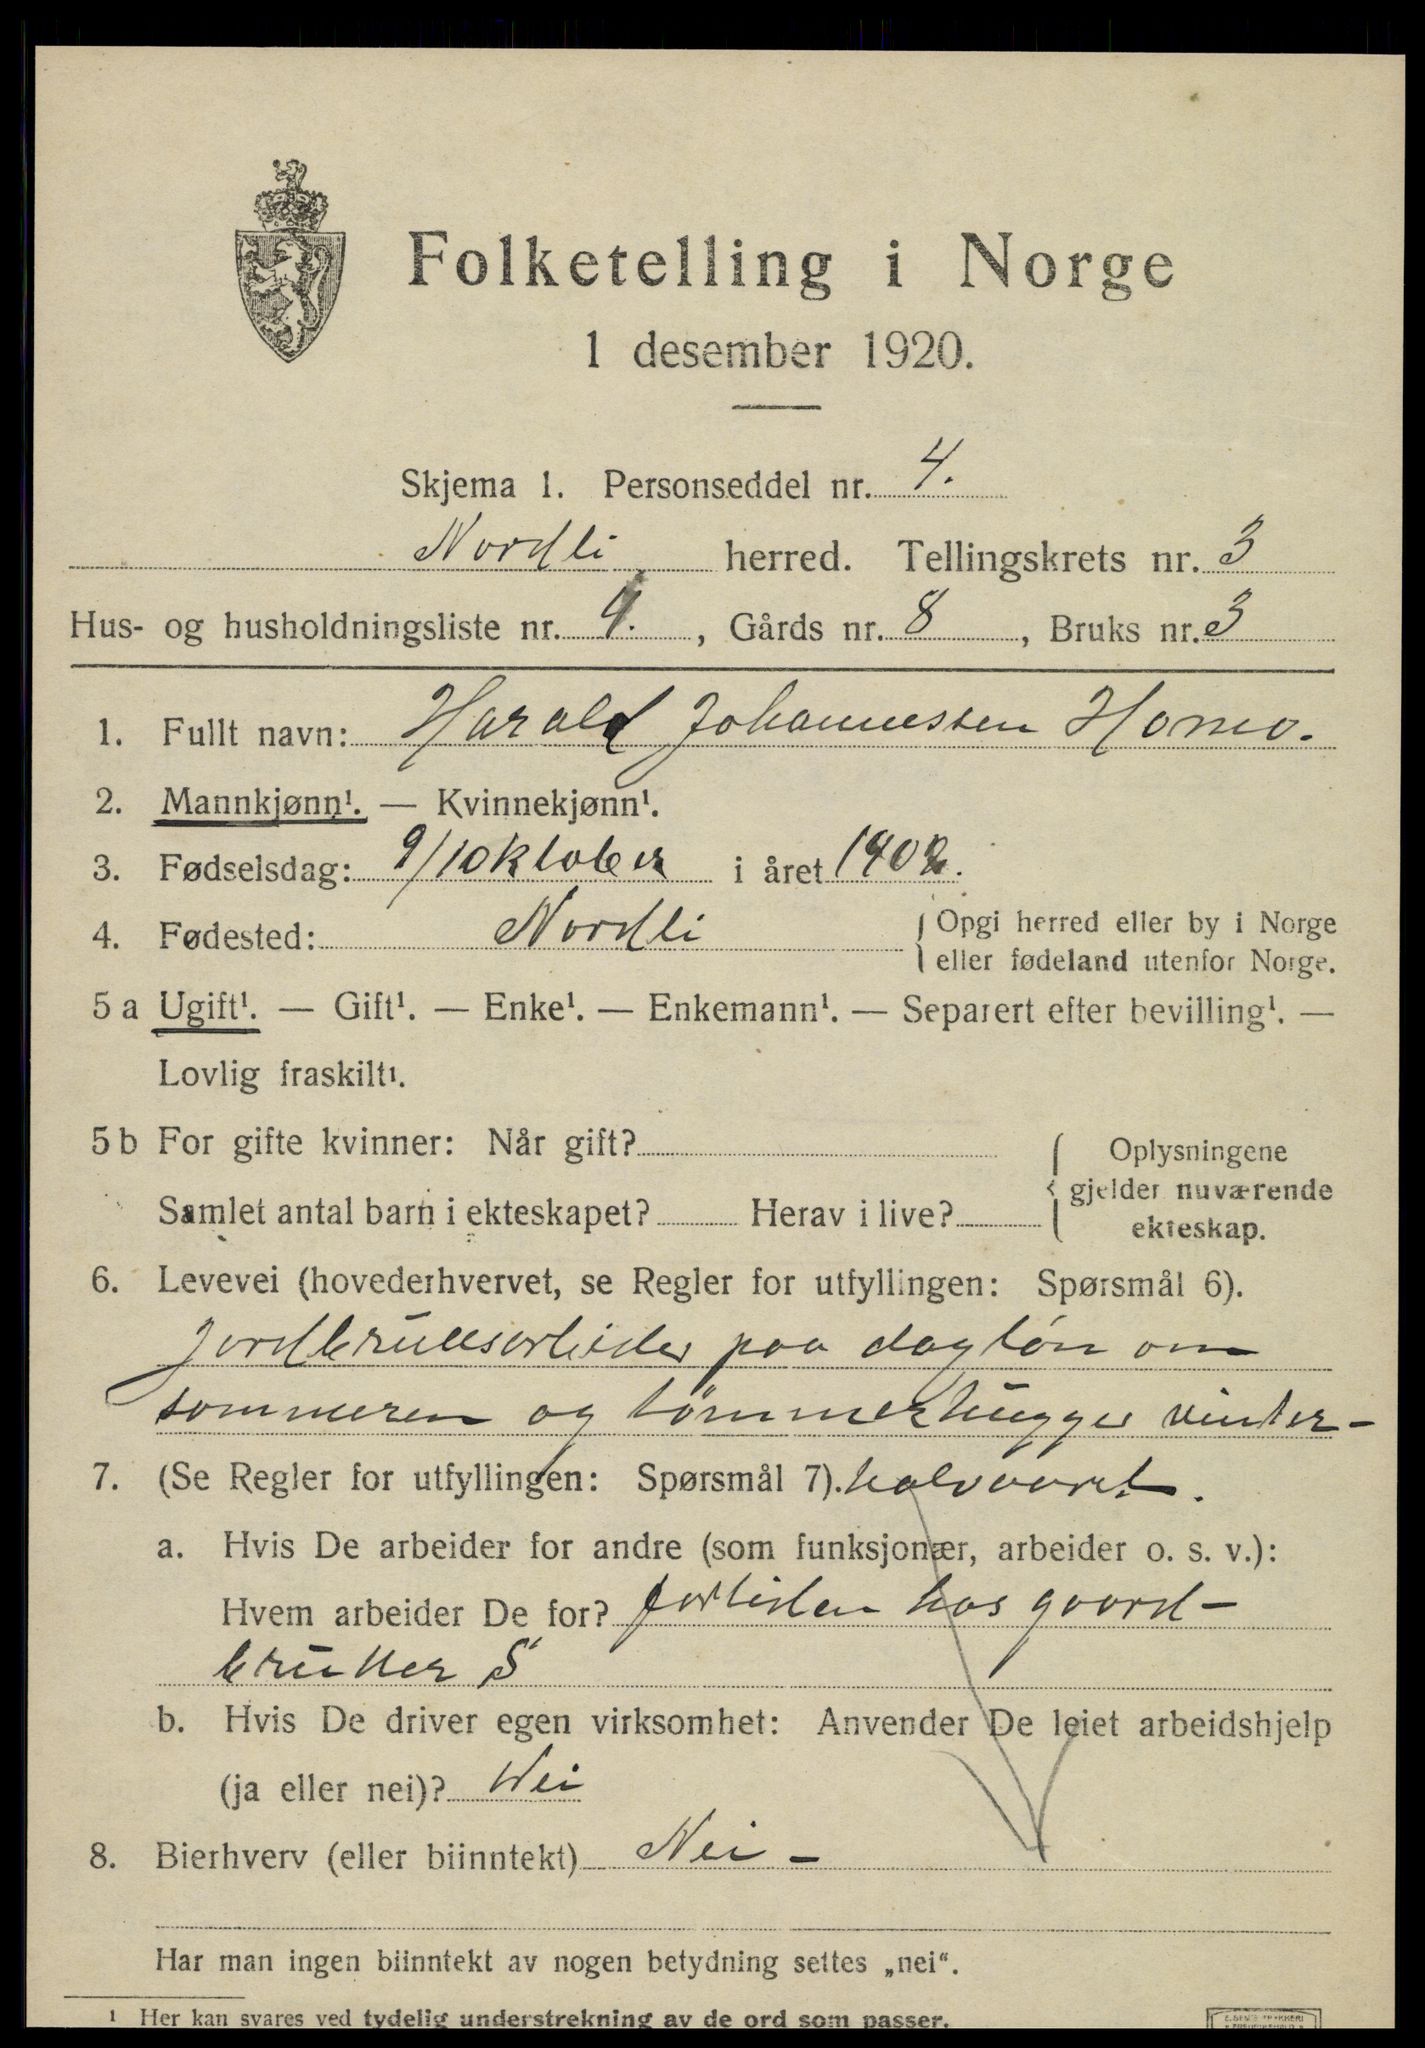 Folketelling i Norge
1 desember 1920.
Skjema 1. Personseddel nr. 4.
Nordli herred. Tellingskrets nr. 3
Hus- og husholdningsliste nr. 4. , Gårds nr. 8 , Bruks nr. 3
1. Fullt navn: Harald Johannessen Homo.
2. Mannkjønn¹. — Kvinnekjønn¹.
3. Fødselsdag: 9/10ktober i året 1902.
4. Fødested: Nordli { Opgi herred eller by i Norge
eller fødeland utenfor Norge.
5 a Ugift¹. — Gift¹. — Enke¹. — Enkemann¹. — Separert efter bevilling¹. —
Lovlig fraskilt¹.
5 b For gifte kvinner: Når gift? { Oplysningene
gjelder nuværende
Samlet antal barn i ekteskapet? Herav i live? ekteskap.
6. Levevei (hovederhvervet, se Regler for utfyllingen: Spørsmål 6).
Jordbruksarbeider paa dagløn om
sommeren og tømmerhugger vinter-
7. (Se Regler for utfyllingen: Spørsmål 7). halvaaret.
a. Hvis De arbeider for andre (som funksjonær, arbeider o. s. v.):
Hvem arbeider De for? fortiden hos gaard-
bruker S
b. Hvis De driver egen virksomhet: Anvender De leiet arbeidshjelp
(ja eller nei)? Nei
8. Bierhverv (eller biinntekt) Nei -
Har man ingen biinntekt av nogen betydning settes „nei“.
¹ Her kan svares ved tydelig understrekning av de ord som passer.